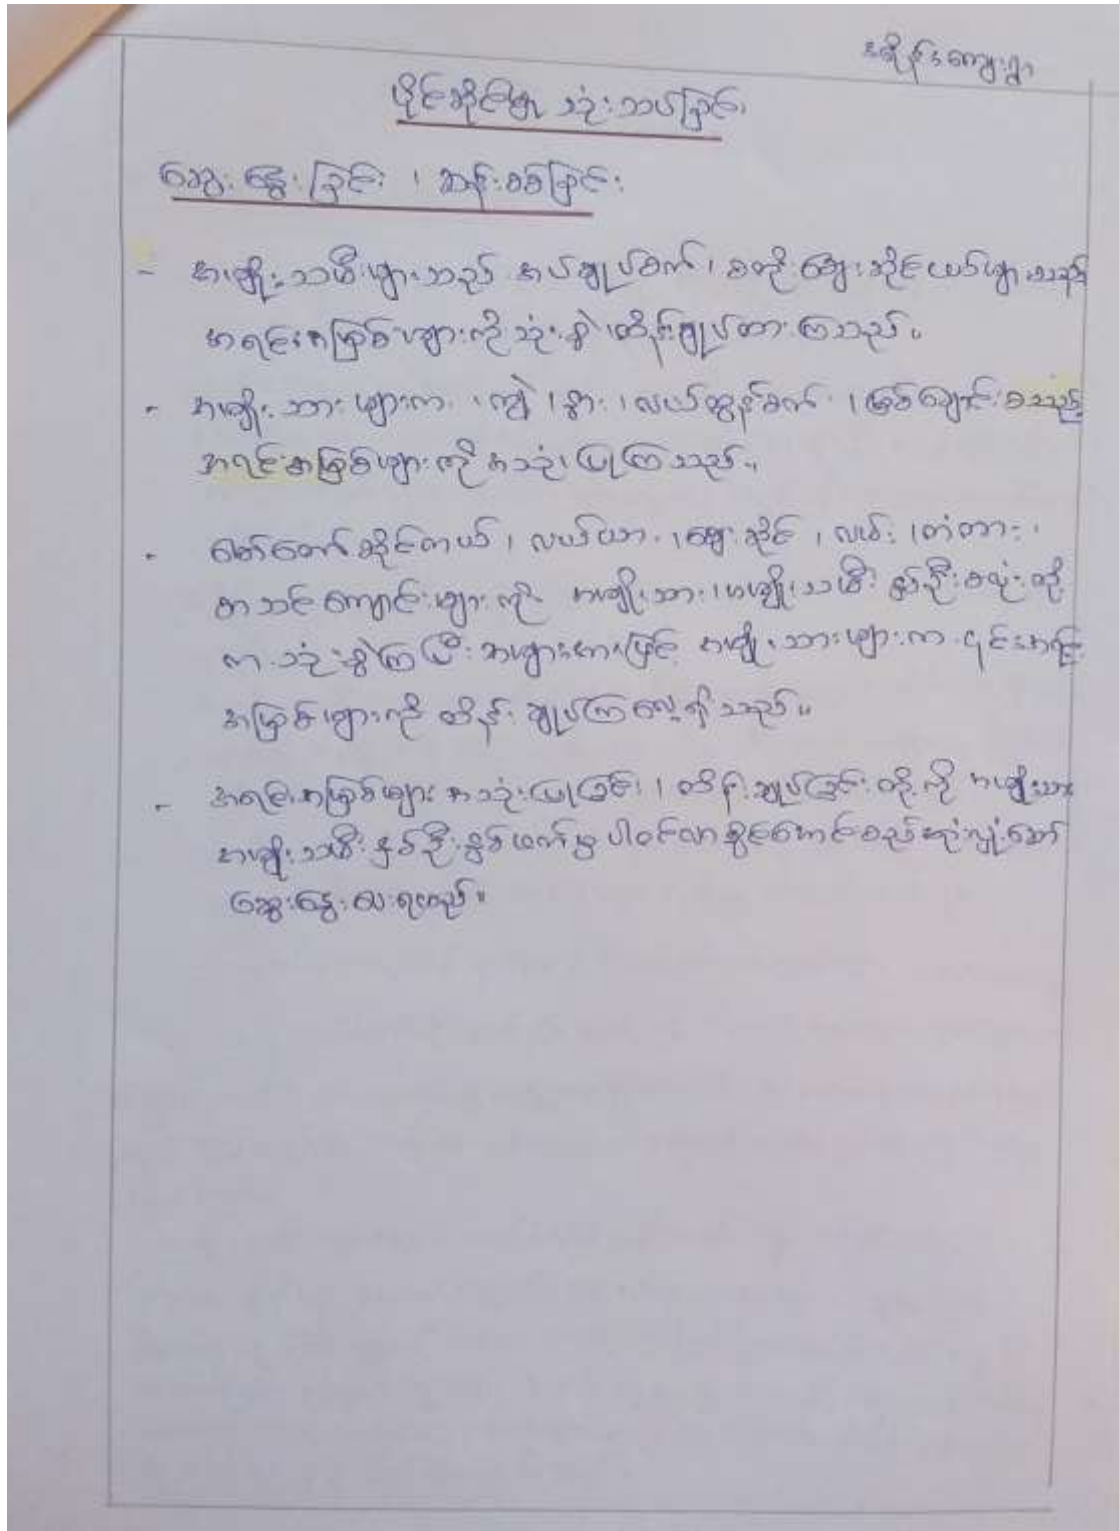 ကျေးရွာ
ပိုင်ဆိုင်မှု သုံးသပ်ခြင်း
ဆွေးနွေးခြင်း ၊ ဆန်းစစ်ခြင်း
- အမျိုးသမီးများသည် အပ်ချုပ်စက်၊ စတိုးဈေးဆိုင်ငယ်များ စသည့်
အရင်းအမြစ်များကိုသုံးစွဲ ထိန်းချုပ်ထားကြသည်။
- အမျိုးသားများက ၊ ကျွဲ ၊ နွား ၊ လယ်ထွန်စက် ၊ မြစ်ချောင်း စသည့်
အရင်းအမြစ်များကို အသုံးပြုကြသည်။
- မော်တော်ဆိုင်ကယ် ၊ လယ်ယာ ၊ ဈေးဆိုင် ၊ လမ်း ၊ တံတား ၊
စာသင်ကျောင်းများကို အမျိုးသား ၊ အမျိုးသမီး နှစ်ဦးစလုံးတို့
က သုံးစွဲကြပြီး အများအားဖြင့် အမျိုးသားများက ၎င်းအရင်း
အမြစ်များကို ထိန်းချုပ်ကြလေ့ရှိသည်။
- အရင်းအမြစ်များ အသုံးပြုခြင်း ၊ ထိန်းချုပ်ခြင်းတို့ကို အမျိုးသား
အမျိုးသမီး နှစ်ဦးနှစ်ဖက်မှ ပါဝင်လာနိုင်အောင်စည်းရုံးလှုံ့ဆော်
ဆွေးနွေးပေးရမည်။